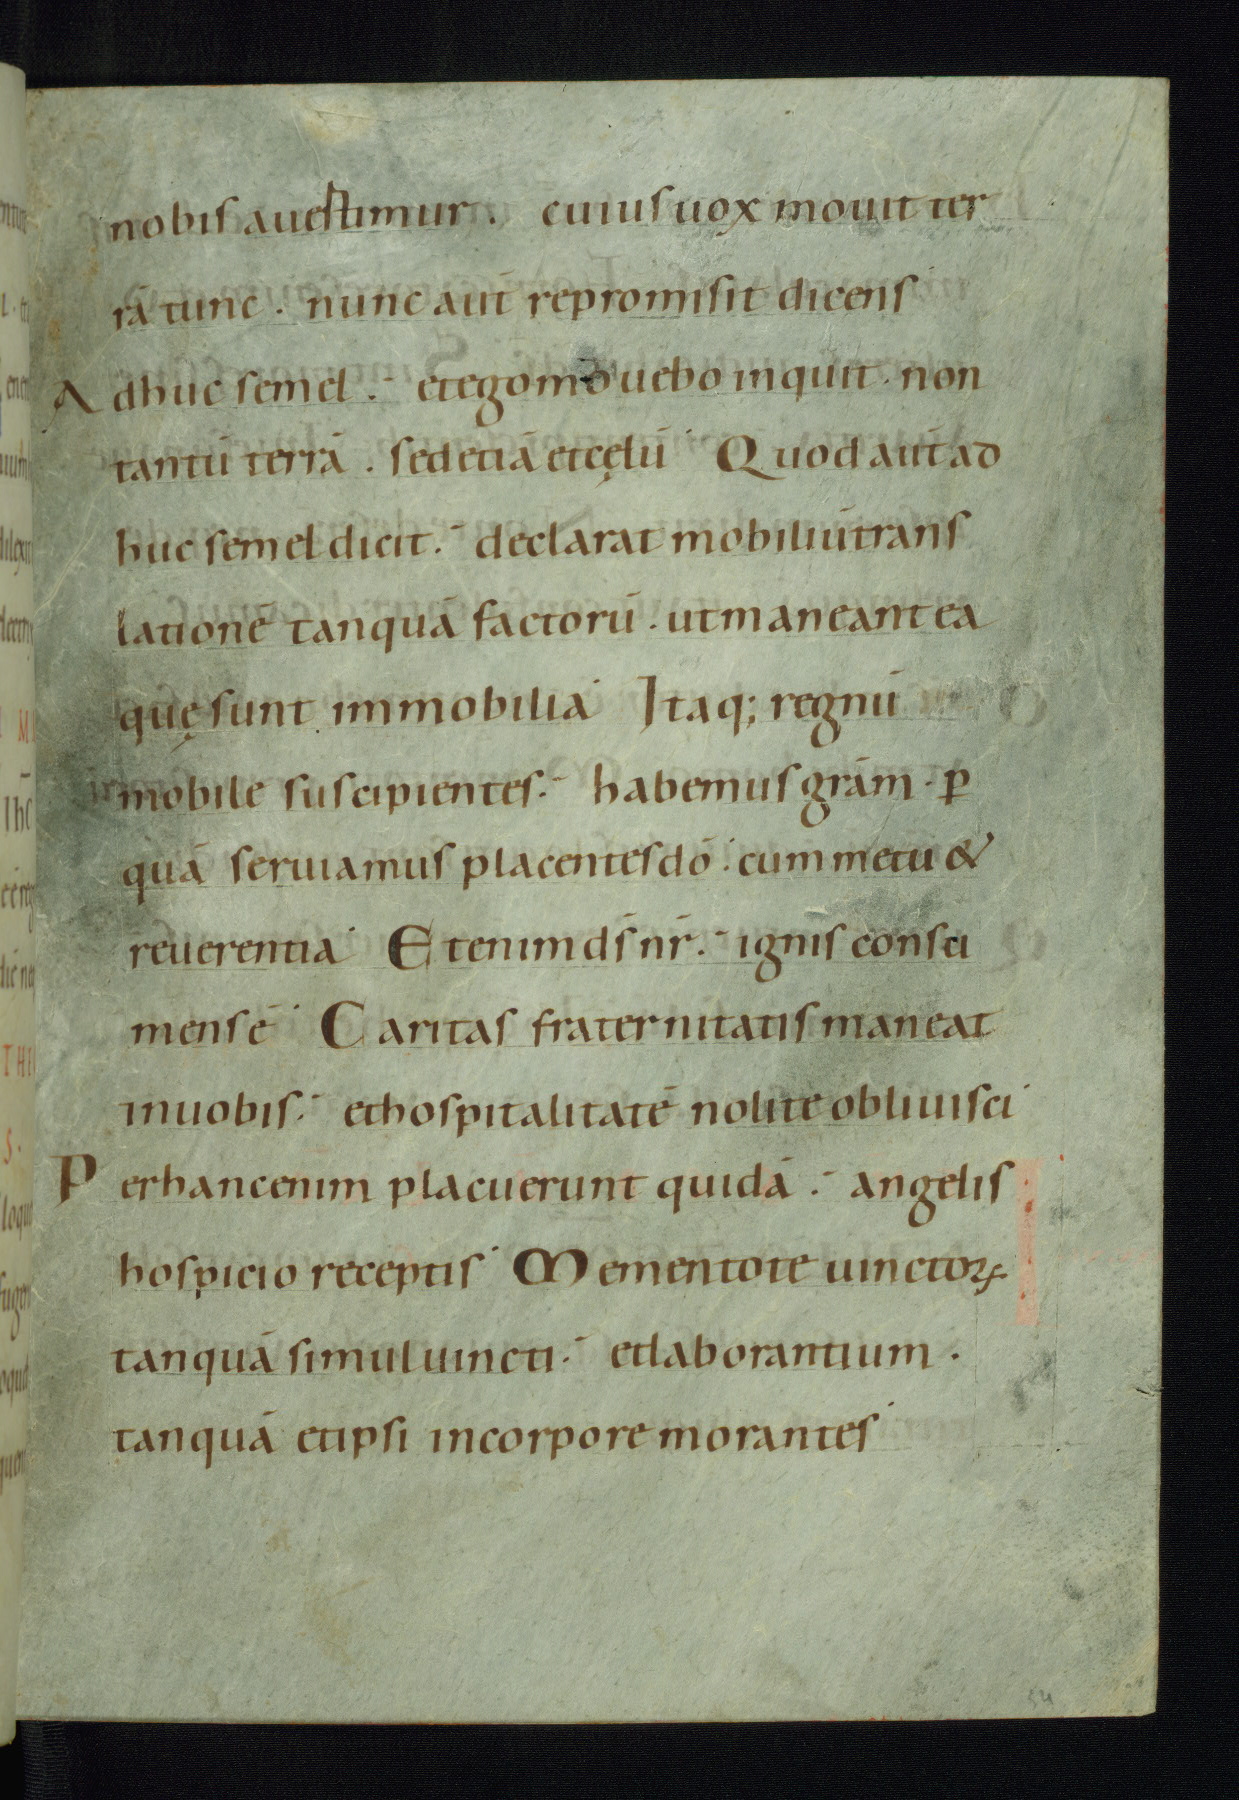 nobis auestimur . cuius uox mouit ter
rā tunc . nunc aut̄ repromisit dicens
Adhuc semel . et ego mouebo inquit . non
tantū terrā . sed etiā et cęlū Quod aut̄ ad
huc semel dicit . declarat mobiliū trans
lationē tanquā factorū . ut maneant ea
quę sunt immobilia Itaq; regnū
inmobile suscipientes . habemus grām . ꝑ
quā seruiamus placentes dō . cum metu &
reuerentia Etenim ds̄ nr̄ . ignis consu
mens ē Caritas fraternitatis maneat
in uobis . et hospitalitatē nolite obliuisci
Per hanc enim placuerunt quidā . angelis
hospicio receptis Mementote uinctoꝝ
tanquā simul uincti . et laborantium .
tanquā et ipsi in corpore morantes
54